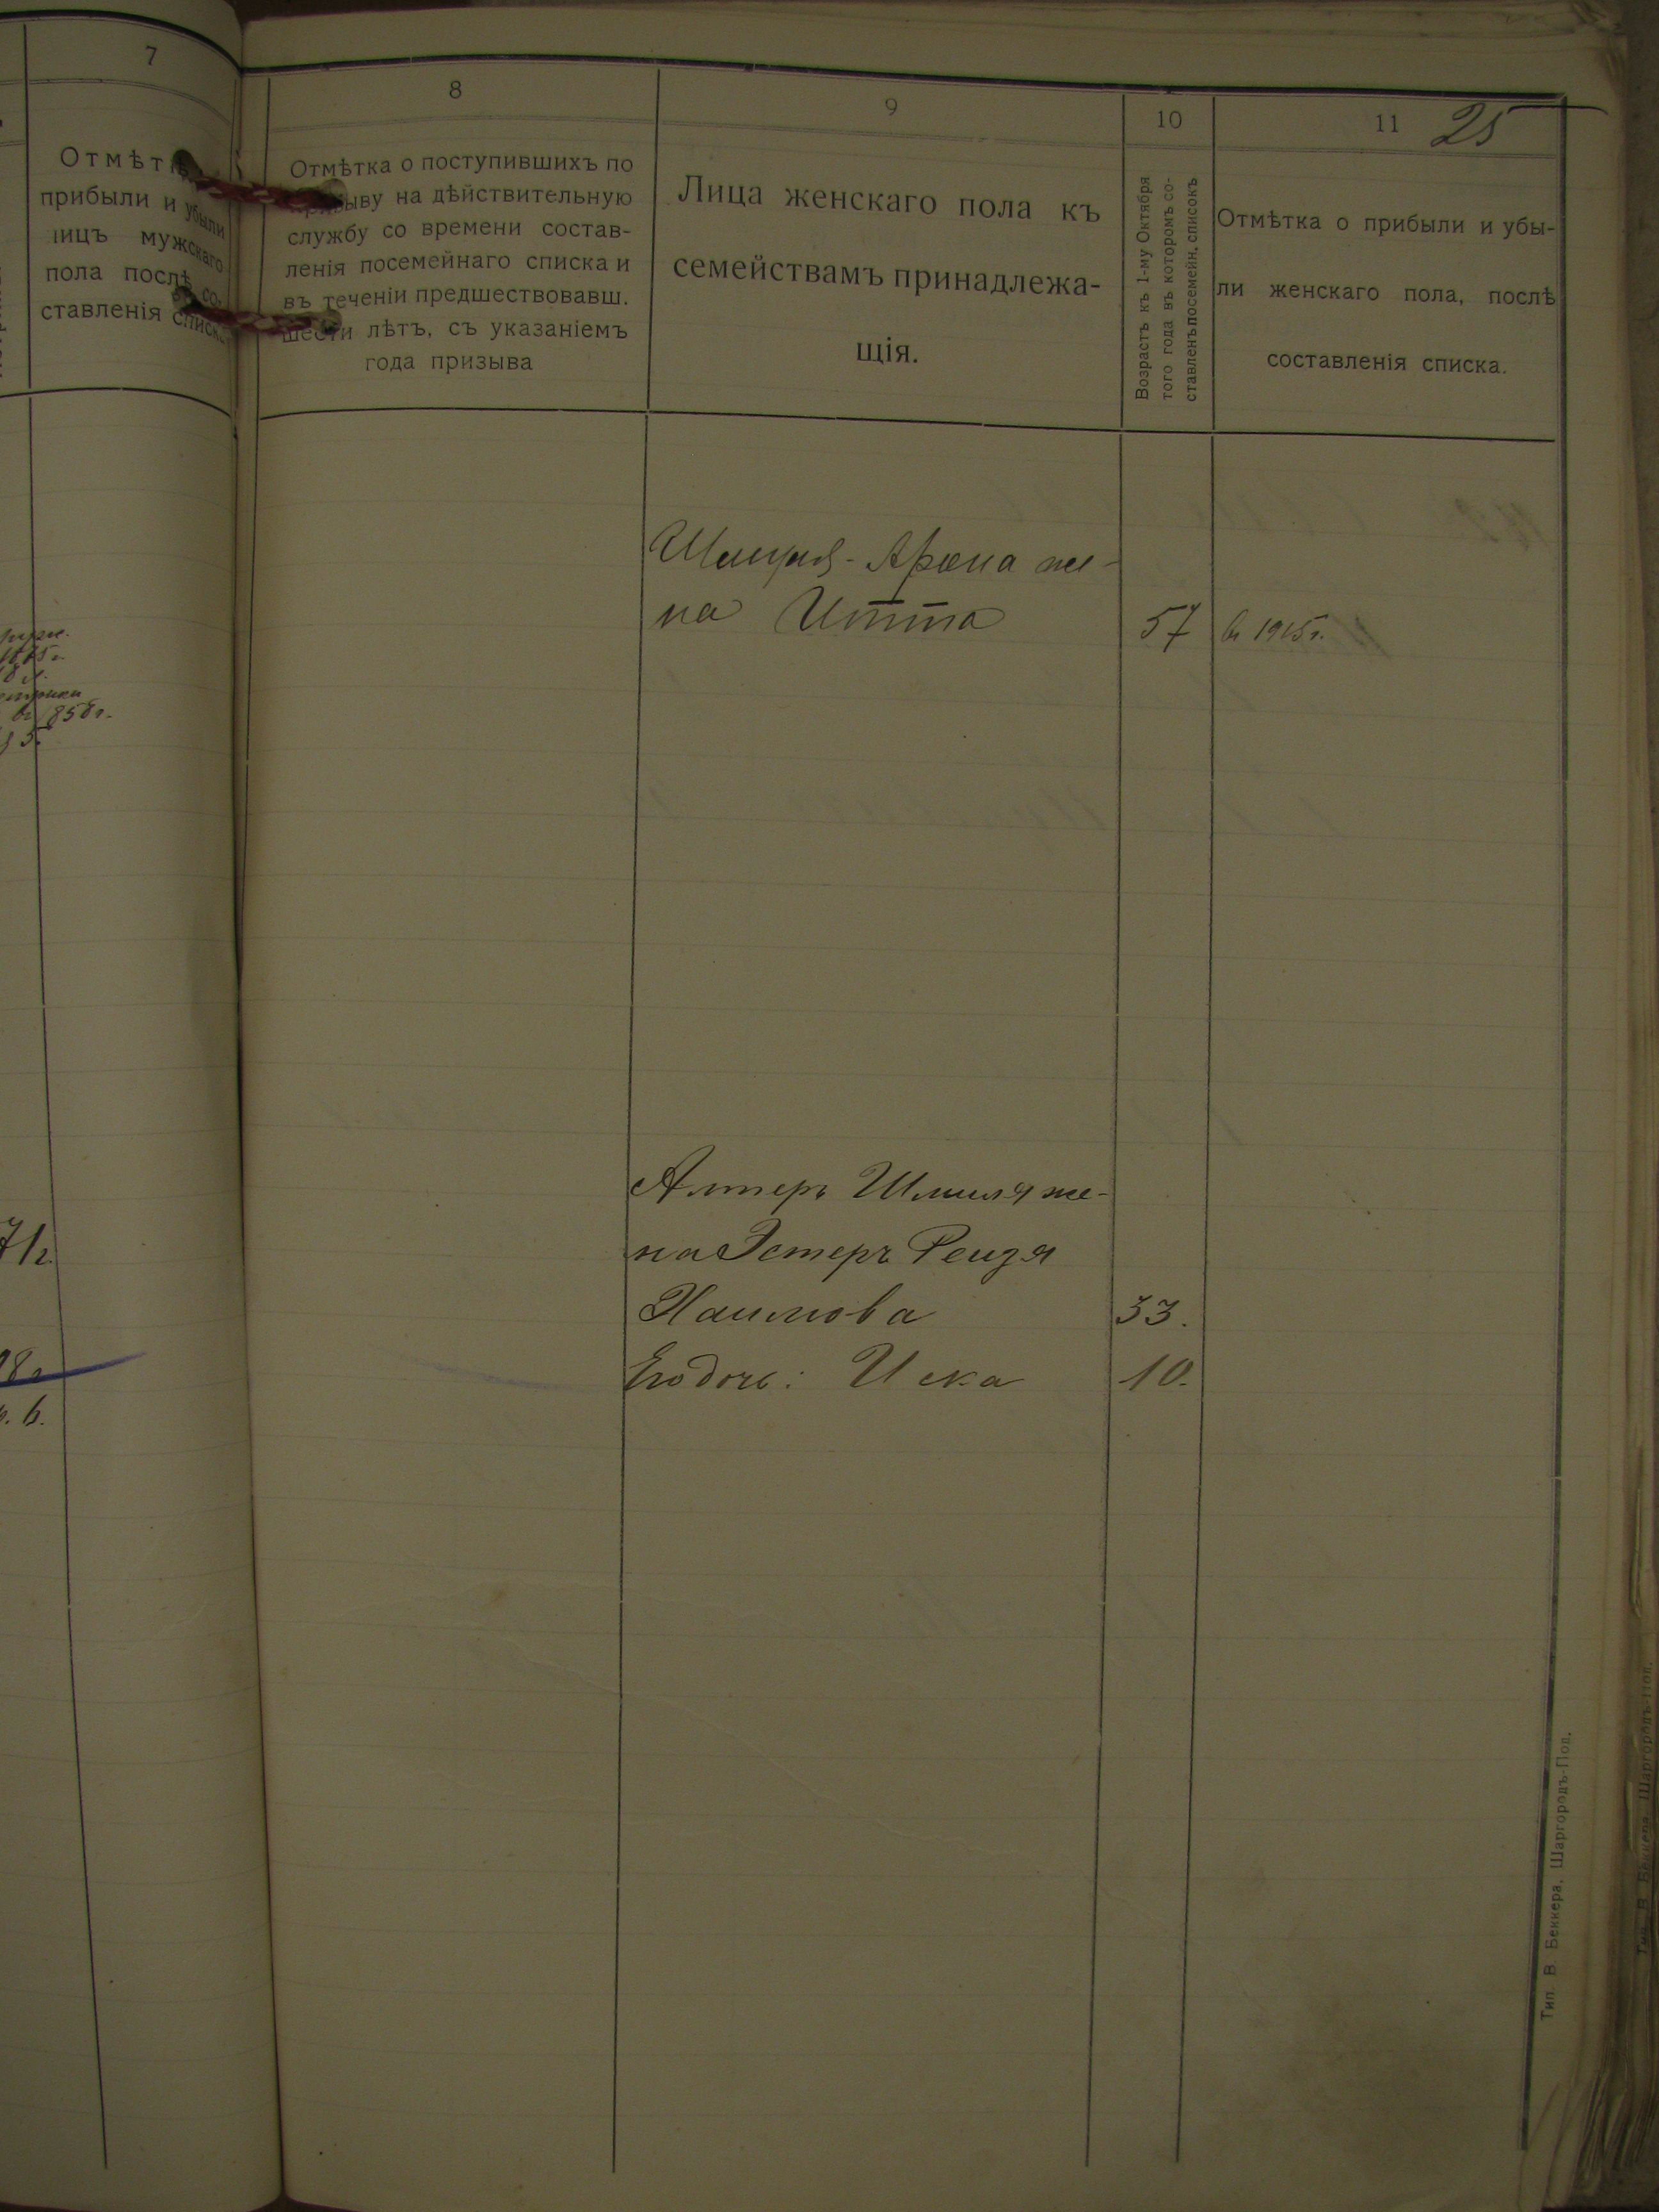 7
прибыли и убыли
лицъ мужскаго
пола послѣ со-
ставленія списка
8
Отмѣтка о поступившихъ по
призыву на дѣйствительную
службу со времени состав-
ленія посемейнаго списка и
въ теченіи предшествовавш.
шести лѣтъ, съ указаніемъ
года призыва
9
Лица женскаго пола къ
семействамъ принадлежа-
щія.
10
Возрастъ къ 1-му Октября
того года въ которомъ со-
ставленъ посемейн. списокъ
11
25
Отмѣтка о прибыли и убы-
ли женскаго пола, послѣ
составленія списка.
Арона же-
на Итта 57 в 1915 г.
Алтеръ Шмиля же-
на Эстеръ Рейзя
Хаимова 33.
Его дочь: Иска 10.
Тип. В. Беккера, Шаргородъ-Под.